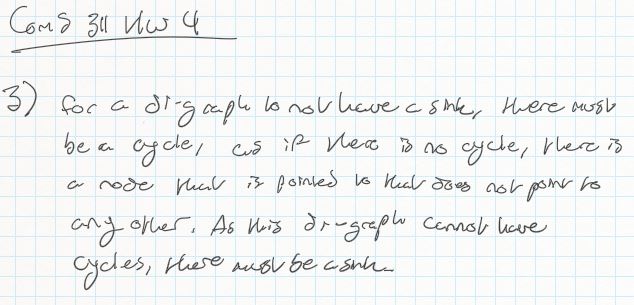 Com S 311 HW 4
3) for a di-graph to not have a sink, there must
be a cycle, as if there is no cycle, there is
a node that is pointed to that does not point to
any other. As this di-graph cannot have
cycles, there must be a sink.